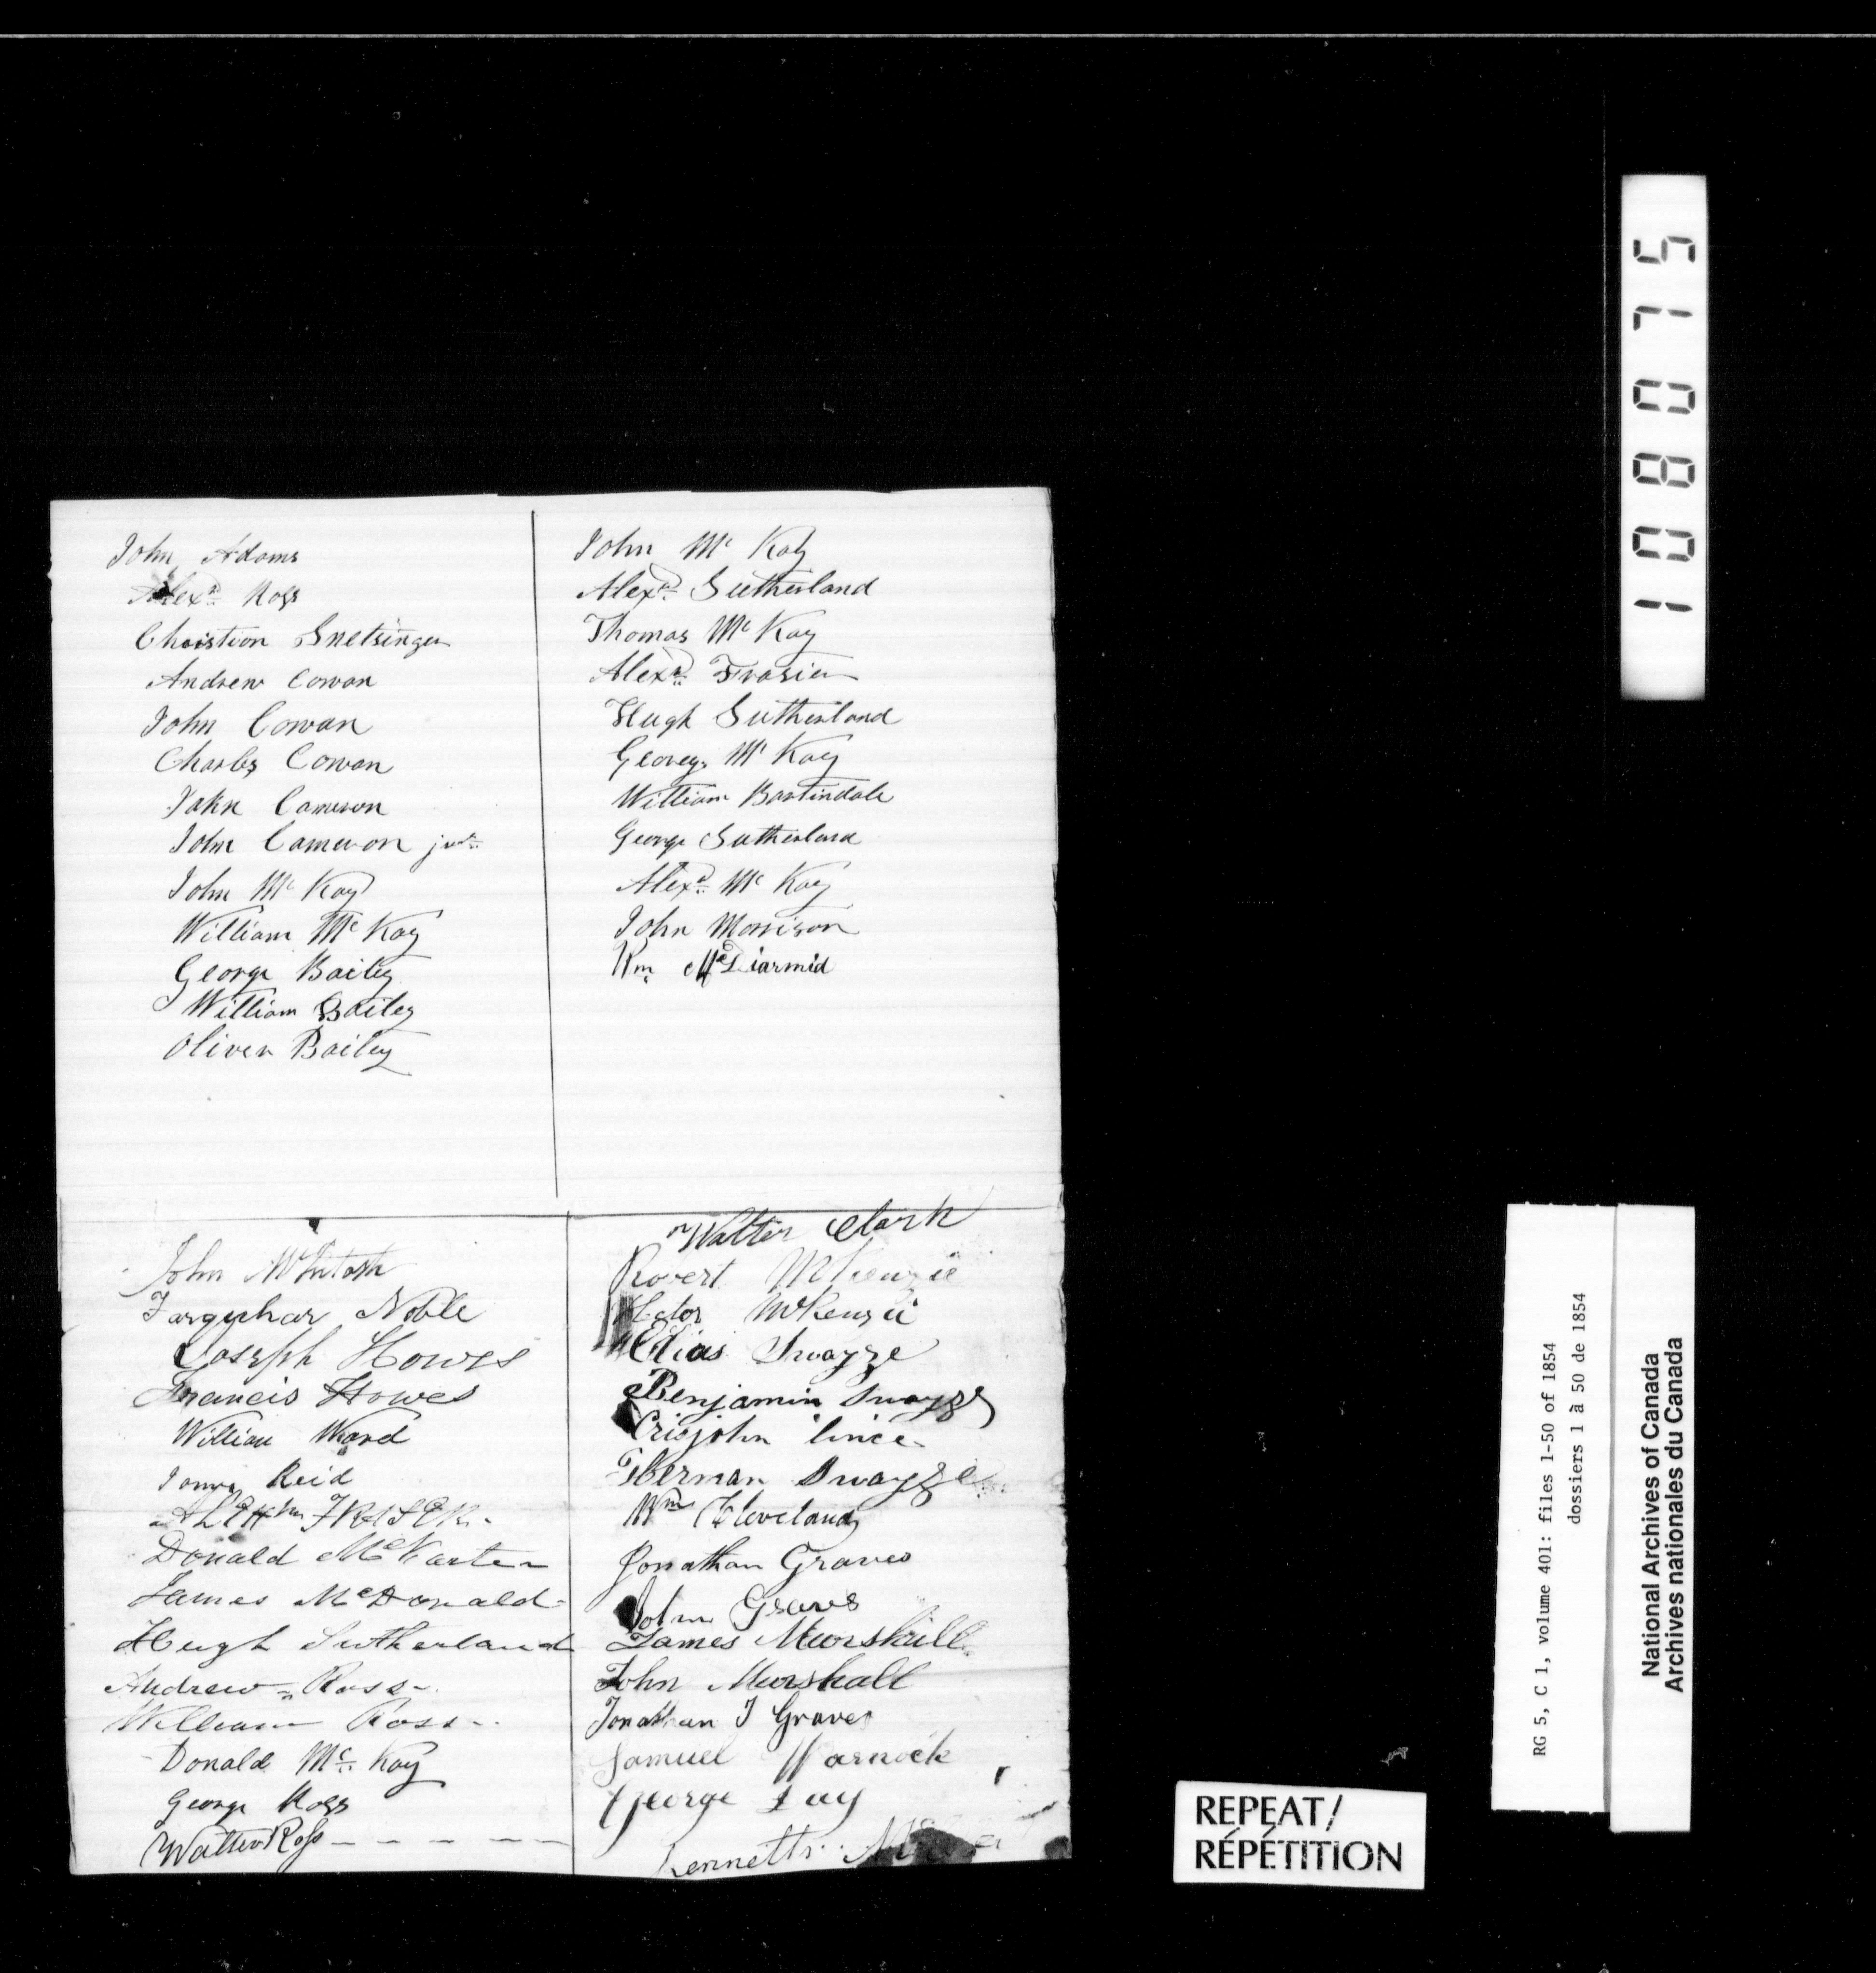 John Adams
Alexr Ross
Christion Snetsinger
Andrew Cowan
John Cowan
Charles Cowan
John Cameron
John Cameron junr
John Mc Kay
William Mc Kay
George Bailey
William Bailey
Oliver Bailey
John Mc Kay
Alexr Sutherland
Thomas Mc Kay
Alexr Frasier
Hugh Sutherland
George Mc Kay
William Bartindale
George Sutherland
Alexr Mc Kay
John Morrison
Wm McDiarmid
John McIntosh
Farquhar Noble
Joseph Howes
Francis Howes
William Ward
Reid
FRASER
Donald Mc
James McDonald
Hugh Sutherland
Andrew Ross
William Ross
Donald Mc Kay
George Ross
Walter Ross
Walter Clark
Robert McKenzie
Hector McKenzie
Elias Swayze
Benjamin Swayze
Crisjohn
Herman Swayze
Wm Cleveland
Jonathan Graves
John Graves
James Murshall
John Murshall
Jonathan J Graves
Samuel Warnock
George Day
108075
RG 5, C 1, volume 401: files 1-50 of 1854
dossiers 1 à 50 de 1854
National Archives of Canada
Archives nationales du Canada
REPEAT/
RÉPÉTITION